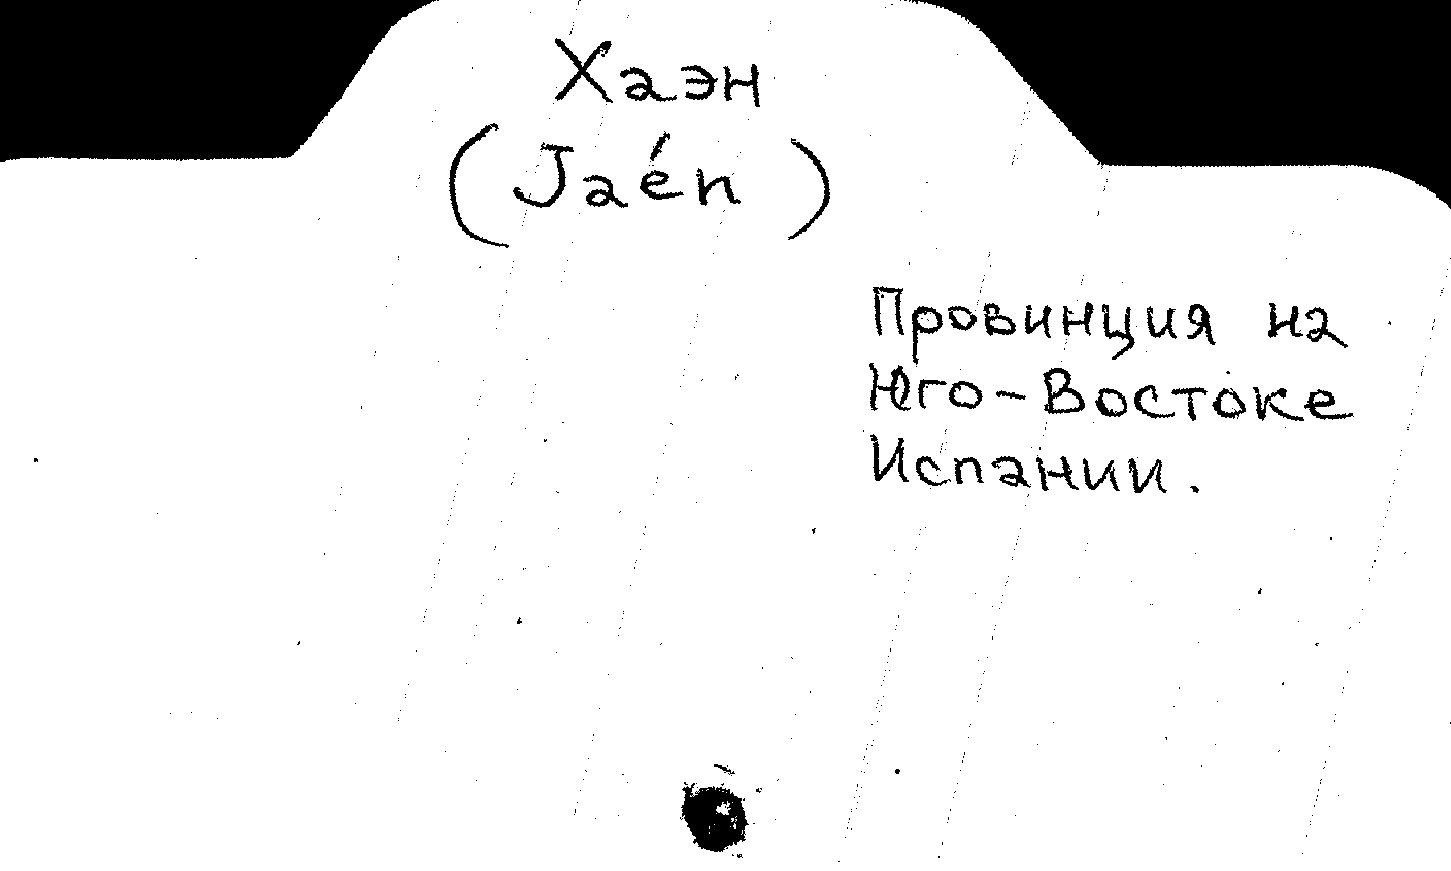 Хаэн
(Jaén)
Провинция на
Юго-Востоке
Испании.